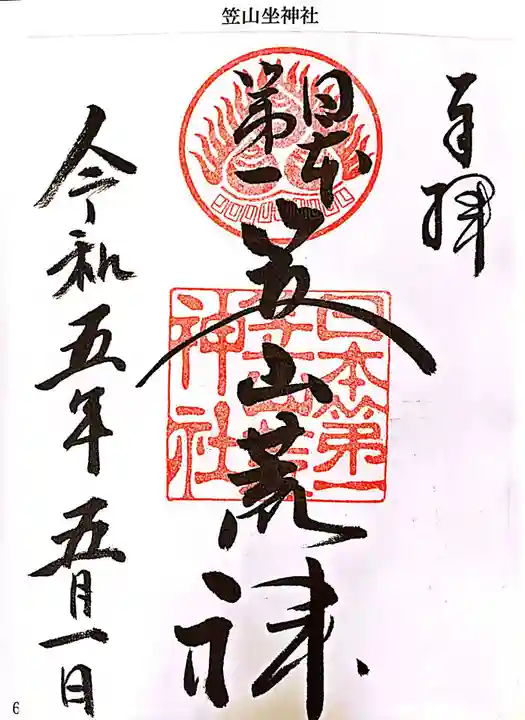 笠山坐神社
奉拝
日本
第一
笠山荒神
令和五年五月一日
日本第一
笠山荒
神社
6